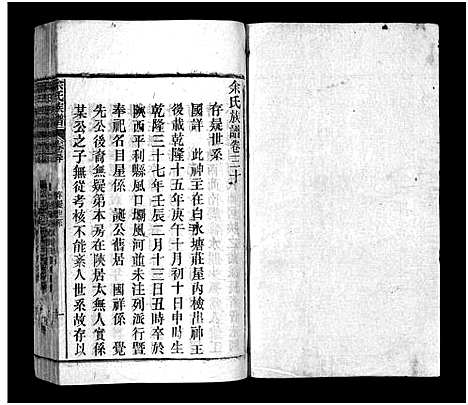 余氏族譜卷三十
存疑世系
國詳 此神主在白水塘莊屋內檢出神主
後載乾隆十五年庚午十月初十日申時生
乾隆三十七年壬辰二月十三日丑時卒於
陝西平利縣風口壩風河並未注列派行暨
奉祀名目星係 護公舊居 國祥係 覺
先公後裔無疑第本房在陝居太無人實係
某公之子無從考核不能亲入世系故存以
余氏族譜